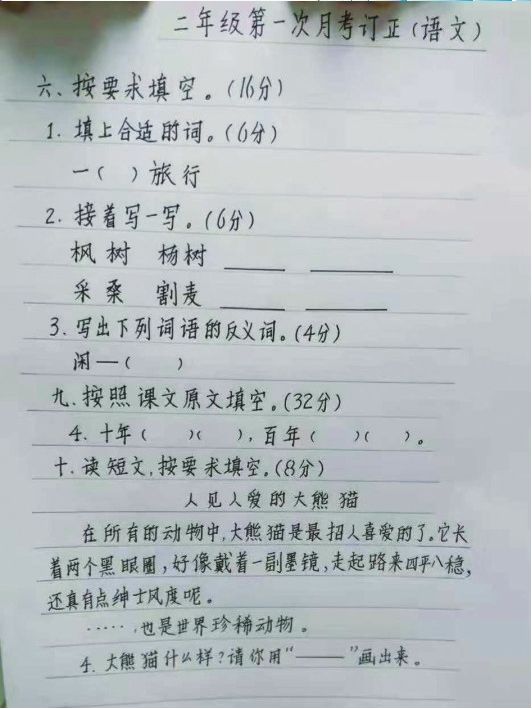 二年级第一次月考订正(语文)
六、按要求填空。(16分)
1. 填上合适的词。(6分)
一( )旅行
2. 接着写一写。(6分)
枫树 杨树 ____ ____
采桑 割麦 ____ ____
3. 写出下列词语的反义词。(4分)
闲—( )
九、按照课文原文填空。(32分)
4. 十年( )( ),百年( )( )。
十、读短文,按要求填空。(8分)
人见人爱的大熊猫
在所有的动物中,大熊猫是最招人喜爱的了。它长
着两个黑眼圈,好像戴着一副墨镜,走起路来四平八稳,
还真有点绅士风度呢。
……,也是世界珍稀动物。
4. 大熊猫什么样?请你用“——”画出来。